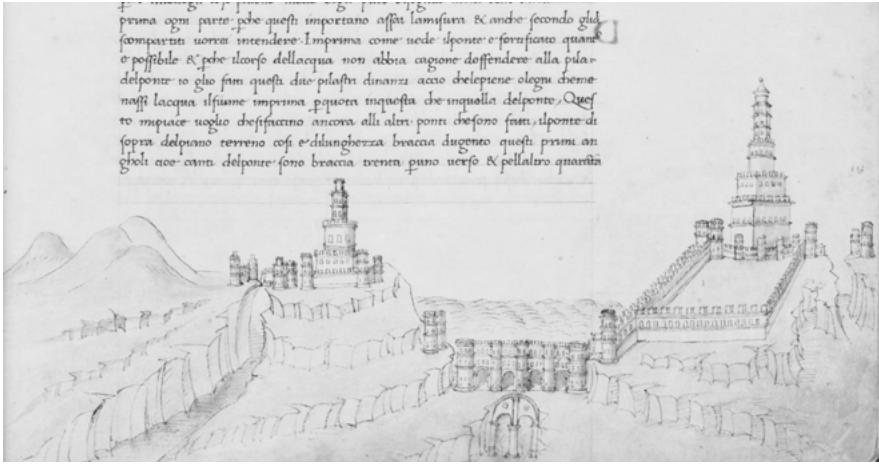 prima ogni parte pche questi importano assai lamisura & anche secondo gli
scompartiti uorrei intendere. Imprima come uede ilponte e fortificato quant
e possibile & pche ilcorso dellacqua non abbia cagione doffendere alla pila
delponte io glio fatti questi due pilastri dinanzi accio chelepiene olegni cheme
nassi lacqua ilfiume imprima pquota inquesta che inquella delponte, Ques
to mipiace uoglio chesifaccino ancora alli altri ponti chesono fatti, ilponte di
sopra delpiano terreno cosi e dilunghezza braccia dugento questi primi an
gholi cioe canti delponte sono braccia trenta puno uerso & pellaltro quaranta